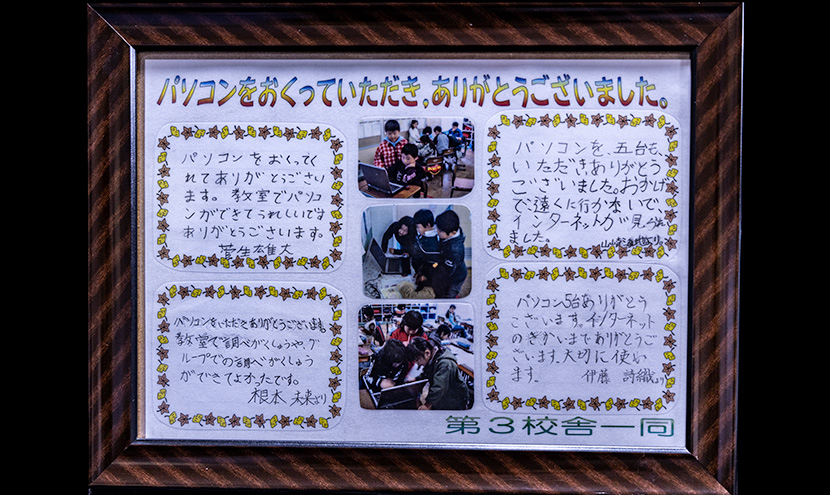 パソコンをおくっていただき,ありがとうございました。
パソコンをおくってく
れてありがとうござい
ます。教室でパソコ
ンができてうれしいです
ありがとうございます。
菅生雄大
パソコンを、五台も、
いただきありがとう
ございました。おかげ
で、遠くに行かないで
インターネットが見られ
ました。
パソコンをいただきありがとうございます。
教室で調べがくしゅうや、グ
ループでの調べがくしゅう
ができてよかったです。
根本 未来より
パソコン5台ありがとう
ございます。インターネット
のきかいまでありがとうご
ざいます。大切に使い
ます。 伊藤 詩織より
第3校舎一同